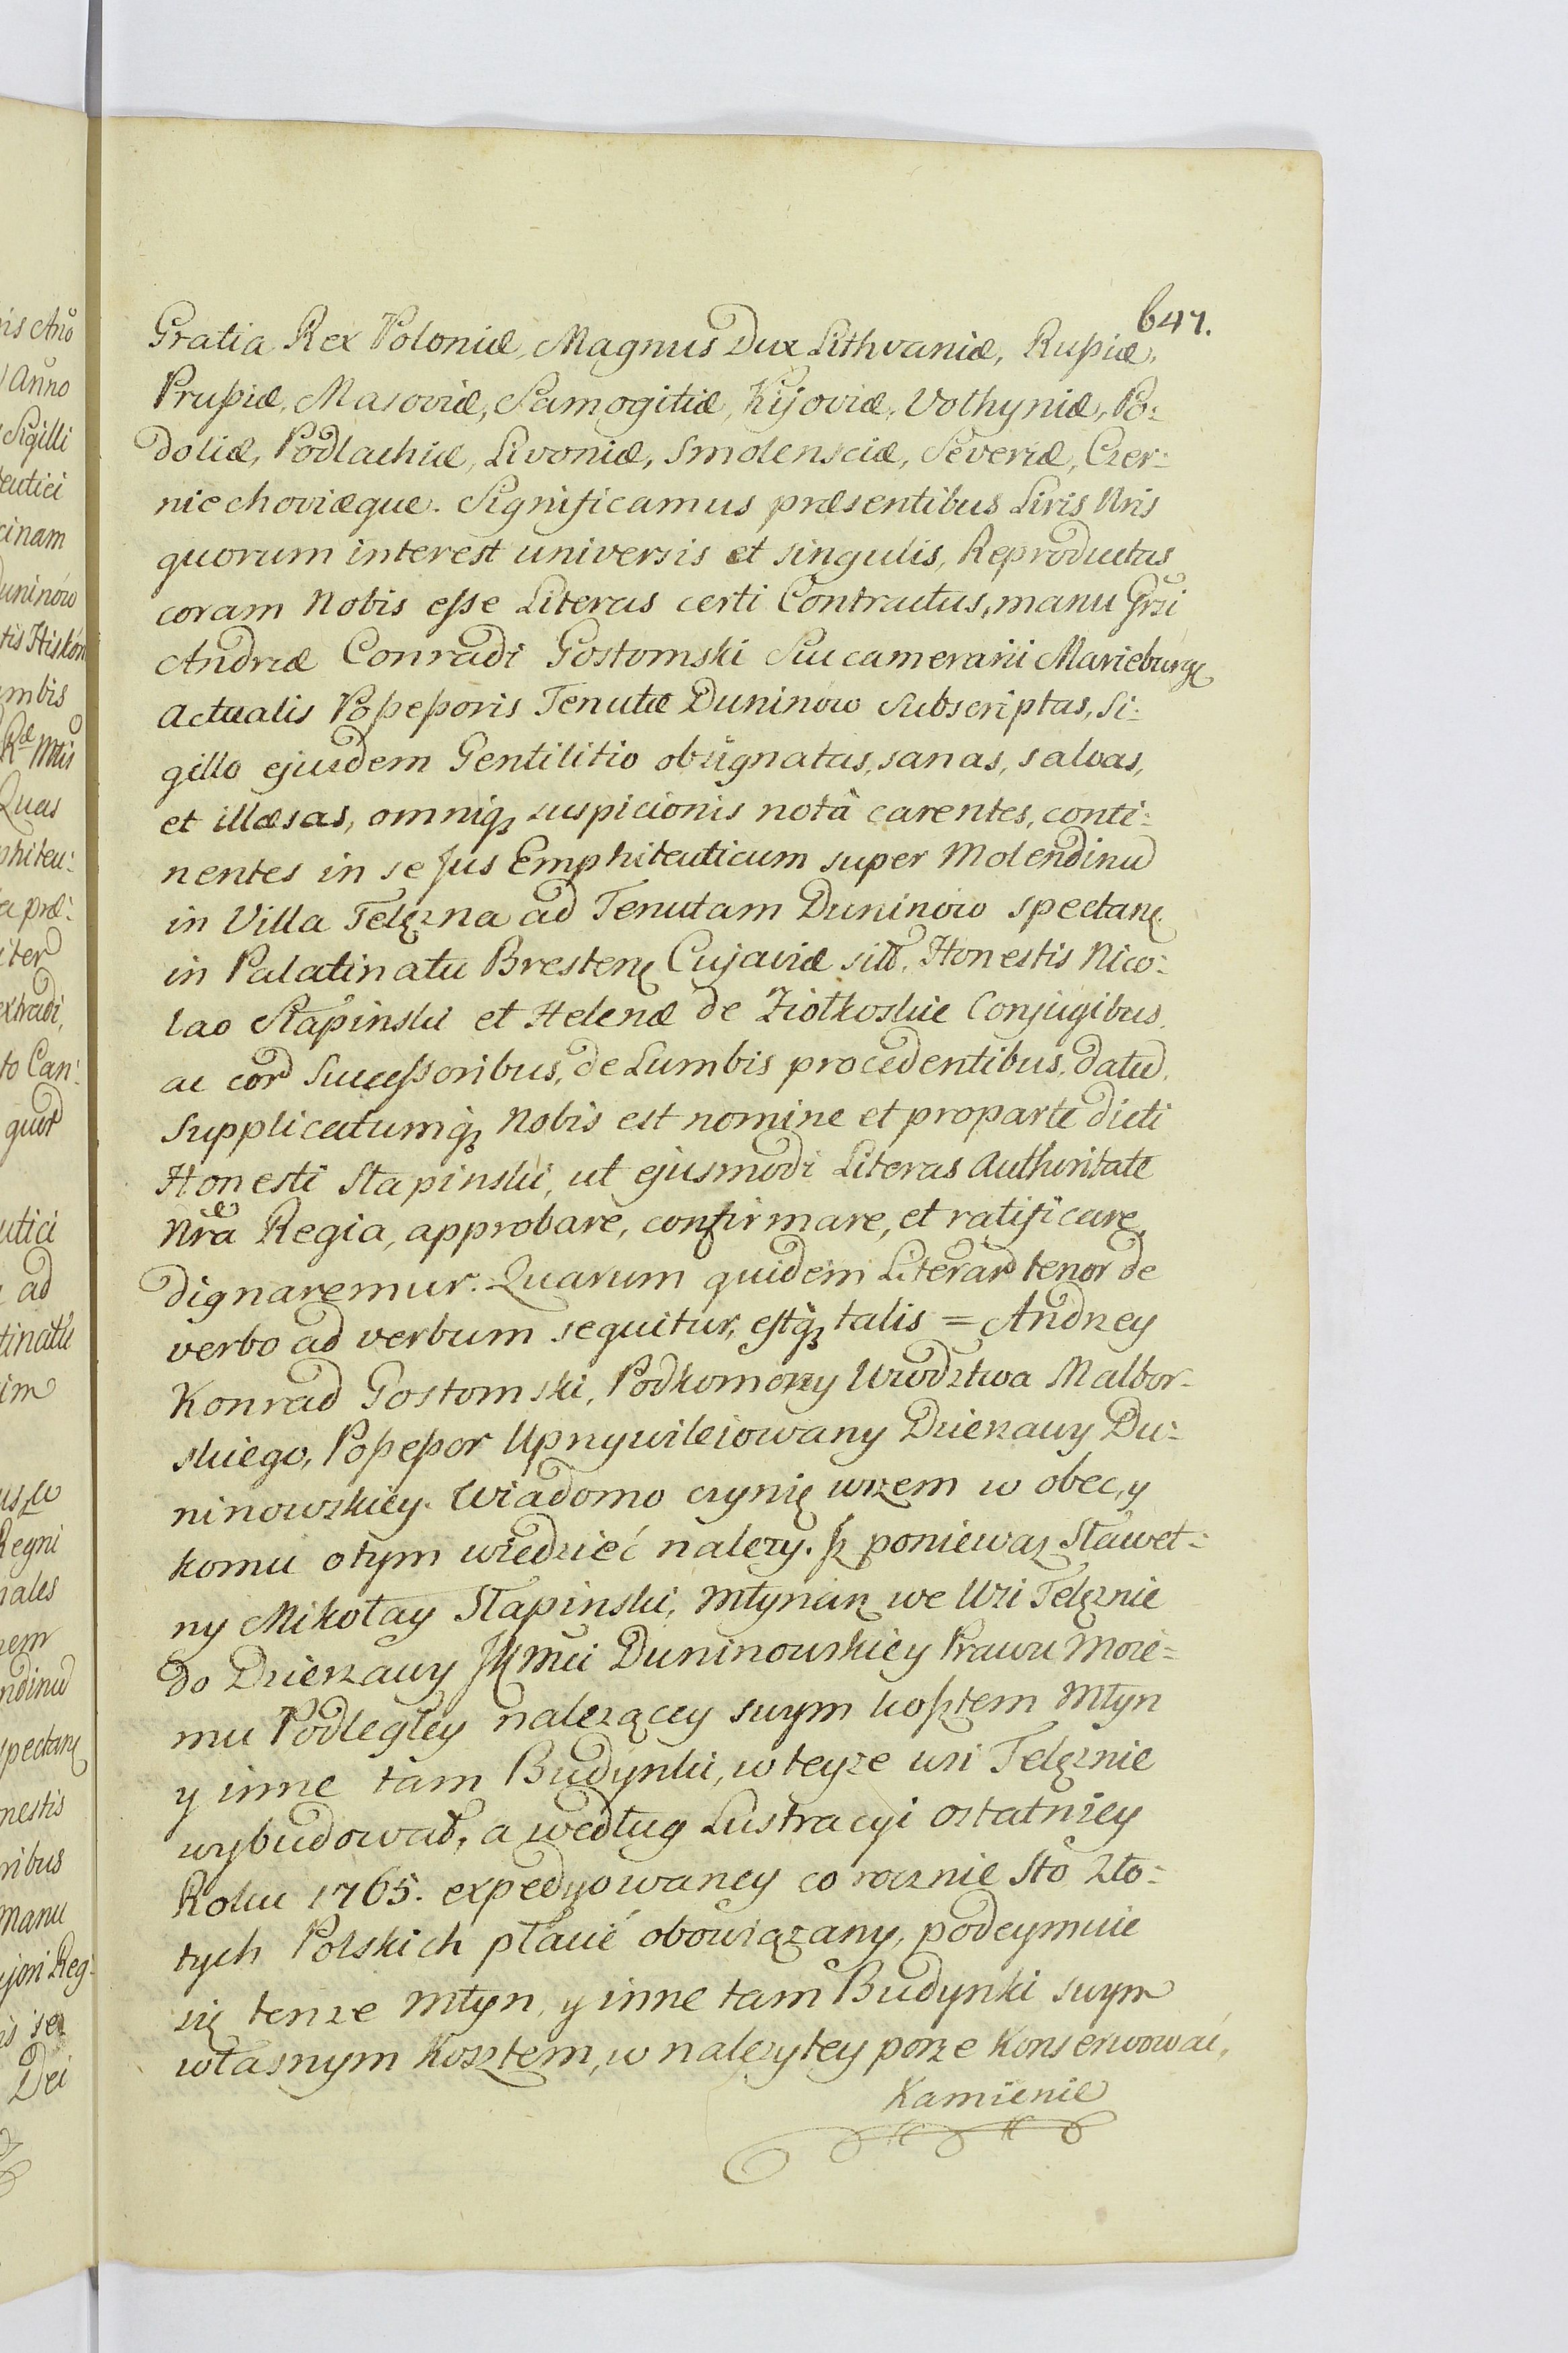 641.
Gratia Rex Poloniæ, Magnus Dux Lithvaniæ, Rußiæ,
Prußiæ, Masoviæ, Samogitiæ, Kijoviæ, Volhyniæ, Po:
doliæ, Podlachiæ, Livoniæ, Smolensciæ, Severiæ, Czer:
niechoviæque. Significamus præsentibus Liris Nris
quorum interest universis et singulis, Reproductas
coram Nobis esse Literas certi Contractus, manu Grsi
Andreæ Conradi Gostomski Succamerarii Marieburgę
actualis Poßeßoris Tenutæ Duninow subscriptas, Si:
gillo ejusdem Gentilitio obsignatas, sanas, salvas,
et illæsas, omniqȝ suspicionis notâ carentes, conti:
nentes in se Jus Emphiteuticum super Molendinū
in Villa Telęzna ad Tenutam Duninow spectanę
in Palatinatu Brestenę Cujaviæ sitō, Honestis Nico:
lao Stapinski et Helenæ de Ziołkoskie Conjugibus,
ac eorū Successoribus, de Lumbis procedentibus, datū,
supplicatumqȝ Nobis est nomine et proparte dicti
Honesti Stapinski, ut ejusmodi Literas Authoritate
Nrã Regia, approbare, confirmare, et ratificare
dignaremur. Quarum quidem Literarū tenor de
verbo ad verbum sequitur, estqȝ talis = Andrzey
Konrad Gostomski, Podkomorzy Wwodztwa Malbor:
skiego, Poßeßor Uprzywileiowany Dzierzawy Du:
ninowskiey. Wiadomo czynię wszem w obec, y
komu otym wiedzieć nalezy. Jż poniewaz Sławet:
ny Mikołay Stapinski, Młynarz we Wsi Telęznie
do Dzierzawy JKMci Duninowskiey Prawu Moie:
mu Podległey nalezącey swym kosztem Młyn
y inne tam Budynki, w teyze wsi Telęznie
wybudował, a według Lustracyi ostatniey
Roku 1765. expedyowaney co rocznie Sto Zło:
tych Polskich płacić obowiązany, podeymuie
się tenze Młyn, y inne tam Budynki swym
własnym Kosztem, w nalezytey porze Konserwować,
Kamienie